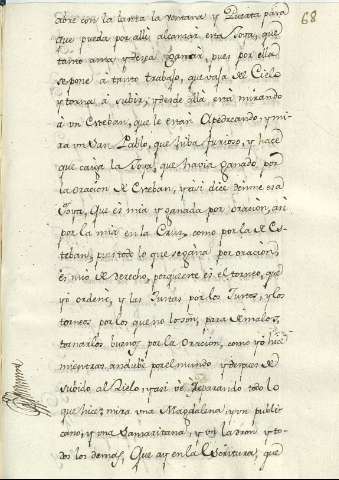 68
abre con la lanta la ventana y Puerta para
que pueda por alli alcansar esta Joya, que
tanto ama, y desea ganar, pues por ella
se pone á tanto trabajo, que vaja del Cielo
y torna á subir, y desde alla está mirando
á vn Esteban, que le estan Apedreando, y mi
ra vn San Pablo, que hiba furioso, y hace
que caiga la Joya, que havia ganado por
la oracion de Esteban, y asi dice denme esa
Joya, que es mia y ganada por oracion, asi
por la mia en la Cruz, como por la de Es
teban, pues todo lo que se gana por oracion,
es mio de derecho, porque este es el torneo, que
yo ordené, y las Justas por los Justos, y los
torneos por los que no lo son, para de malos,
tornarlos buenos por la Oracion, como yo hice
mientras anduve por el mundo, y despues de
subido al Cielo, y asi vé reparando todo lo
que hice, mira vna Magdalena, y vn publi
cano, y vna Samaritana, y vn ladron, y to
dos los demas, Que ay en la Escritura, que